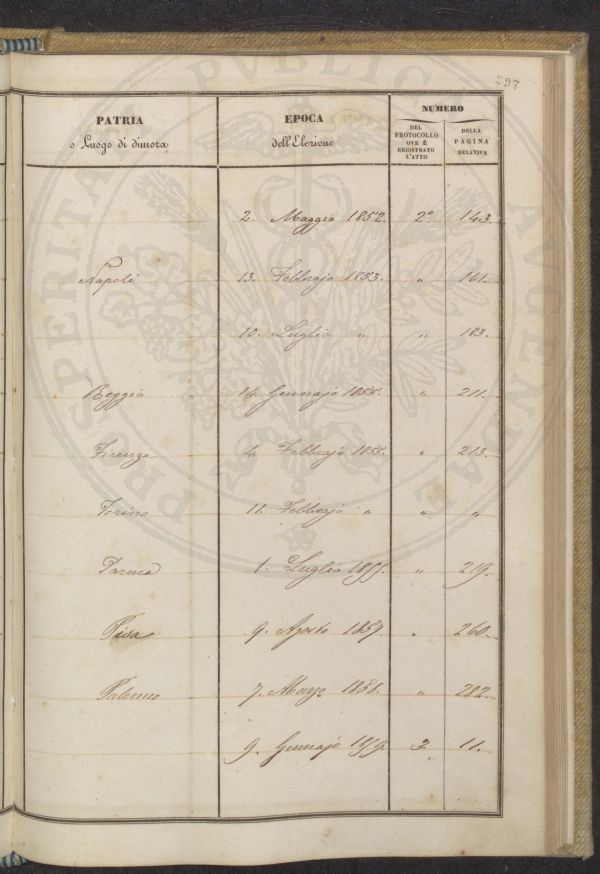 297
PATRIA
o Luogo di dimora
EPOCA
dell'Elezione
NUMERO
DEL
PROTOCOLLO
OVE È
REGISTRATO
L'ATTO
DELLA
PAGINA
RELATIVA
2. Maggio 1852. 2° 143.
Napoli 13. Febbrajo 1853. " 161.
10. Luglio " " 183.
Reggio 14. Gennajo 1855. " 211.
Firenze 4. Febbrajo 1855. " 213.
Torino 11. Febbrajo " " "
Parma 1. Luglio 1855. " 219.
Pisa 9. Agosto 1857. " 260.
Palermo 7. Marzo 1858. " 282.
9. Gennajo 1859. 3. 11.
PROSPERITATI PUBLICAE AUGENDAE